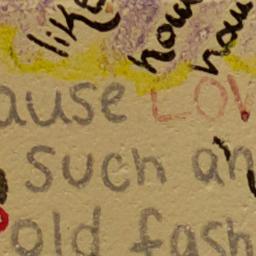 like how how
ause LOV
such an
old fash